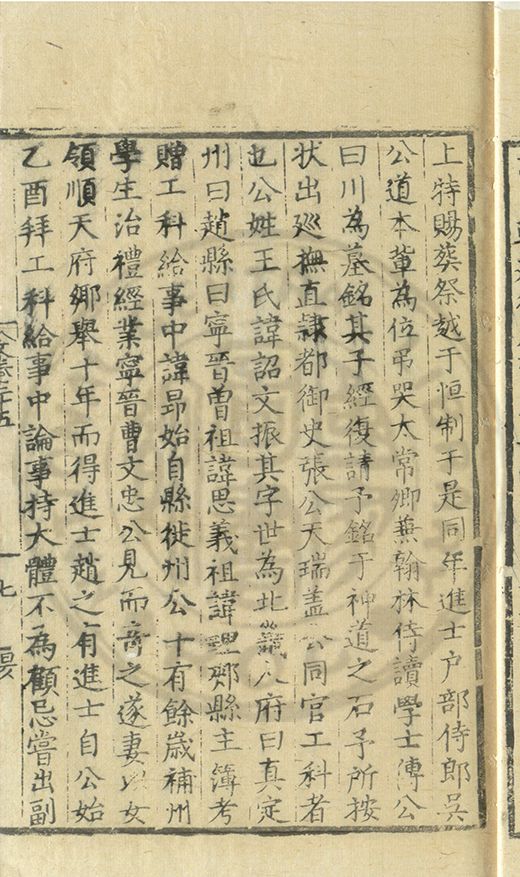 上特賜葬祭越于恒制于是同年進士户部侍郎吳
公道本輩為位弔哭太常卿兼翰林侍讀學士傅公
曰川為墓銘其子經復請予銘于神道之石予所按
状出廵撫直隷都御史張公天瑞盖公同官工科者
也公姓王氏諱詔文振其字世為北畿人府曰真定
州曰趙縣曰寧晉曽祖諱思義祖諱理郟縣主簿考
贈工科給事中諱昻始自縣徙州公十有餘歲補州
學生治禮經業寧晉曹文忠公見而竒之遂妻以女
領順天府鄉舉十年而得進士趙之有進士自公始
乙酉拜工科給事中論事持大體不為顧忌嘗出副
七